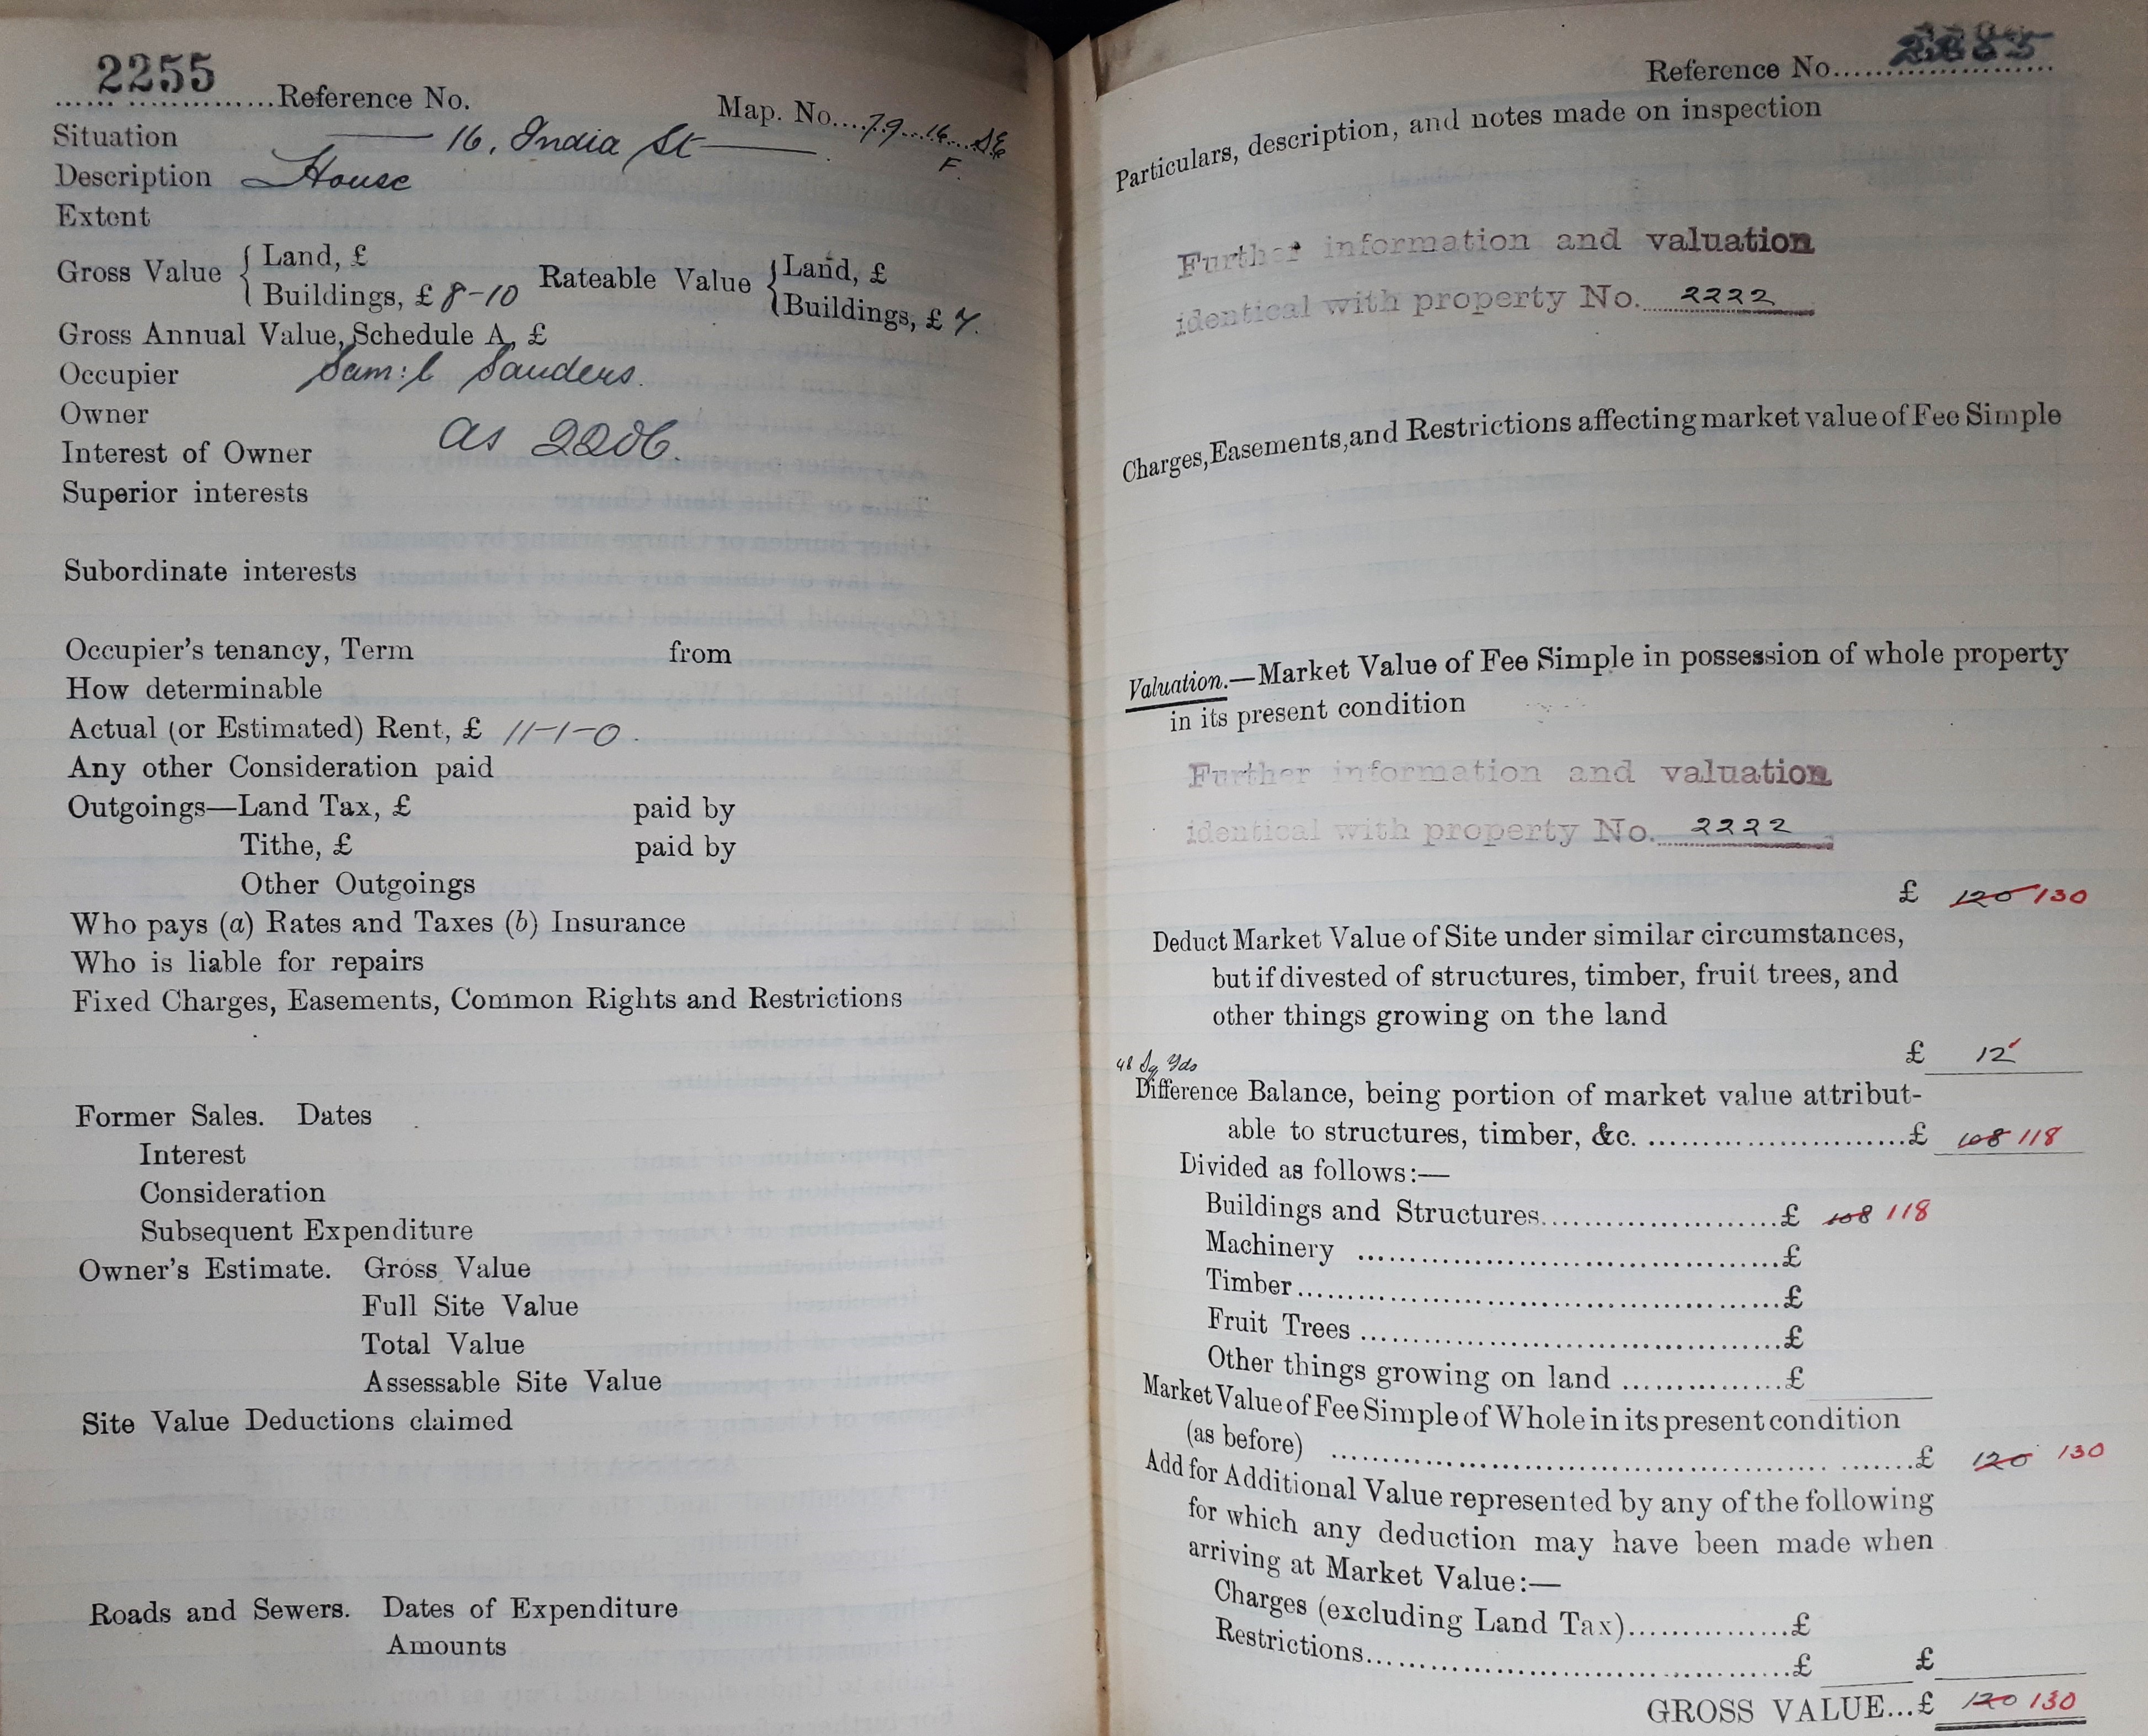 2255 Reference No.
Map. No. 79 16 SE
F.
Situation 16, India St
Description House
Extent
Gross Value { Land, £
Buildings, £ 8-10
Rateable Value { Land, £
Buildings, £ 7.
Gross Annual Value, Schedule A, £
Occupier Sam:l Sanders.
Owner
as 2206.
Interest of Owner
Superior interests
Subordinate interests
Occupier's tenancy, Term from
How determinable
Actual (or Estimated) Rent, £ 11-1-0.
Any other Consideration paid
Outgoings—Land Tax, £ paid by
Tithe, £ paid by
Other Outgoings
Who pays (a) Rates and Taxes (b) Insurance
Who is liable for repairs
Fixed Charges, Easements, Common Rights and Restrictions
Former Sales. Dates
Interest
Consideration
Subsequent Expenditure
Owner's Estimate. Gross Value
Full Site Value
Total Value
Assessable Site Value
Site Value Deductions claimed
Roads and Sewers. Dates of Expenditure
Amounts
Reference No.
Particulars, description, and notes made on inspection
Further information and valuation
identical with property No. 2222
Charges, Easements, and Restrictions affecting market value of Fee Simple
Valuation.—Market Value of Fee Simple in possession of whole property
in its present condition
Further information and valuation
identical with property No. 2222
£ 120 130
Deduct Market Value of Site under similar circumstances,
but if divested of structures, timber, fruit trees, and
other things growing on the land
£ 12
48 Sq Yds
Difference Balance, being portion of market value attribut-
able to structures, timber, &c. £ 108 118
Divided as follows:—
Buildings and Structures £ 108 118
Machinery £
Timber £
Fruit Trees £
Other things growing on land £
Market Value of Fee Simple of Whole in its present condition
(as before) £ 120 130
Add for Additional Value represented by any of the following
for which any deduction may have been made when
arriving at Market Value:—
Charges (excluding Land Tax) £
Restrictions £ £
GROSS VALUE...£ 120 130